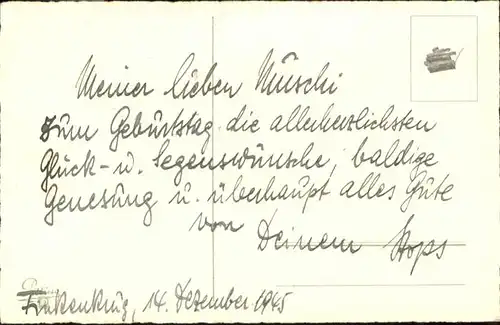 Meiner lieben Muschi
zum Geburtstag die allerherzlichsten
Glück- u. Segenswünsche, baldige
Genesung u. überhaupt alles Gute
von
Deinem Stops
Finkenkrug, 14. Dezember 1945